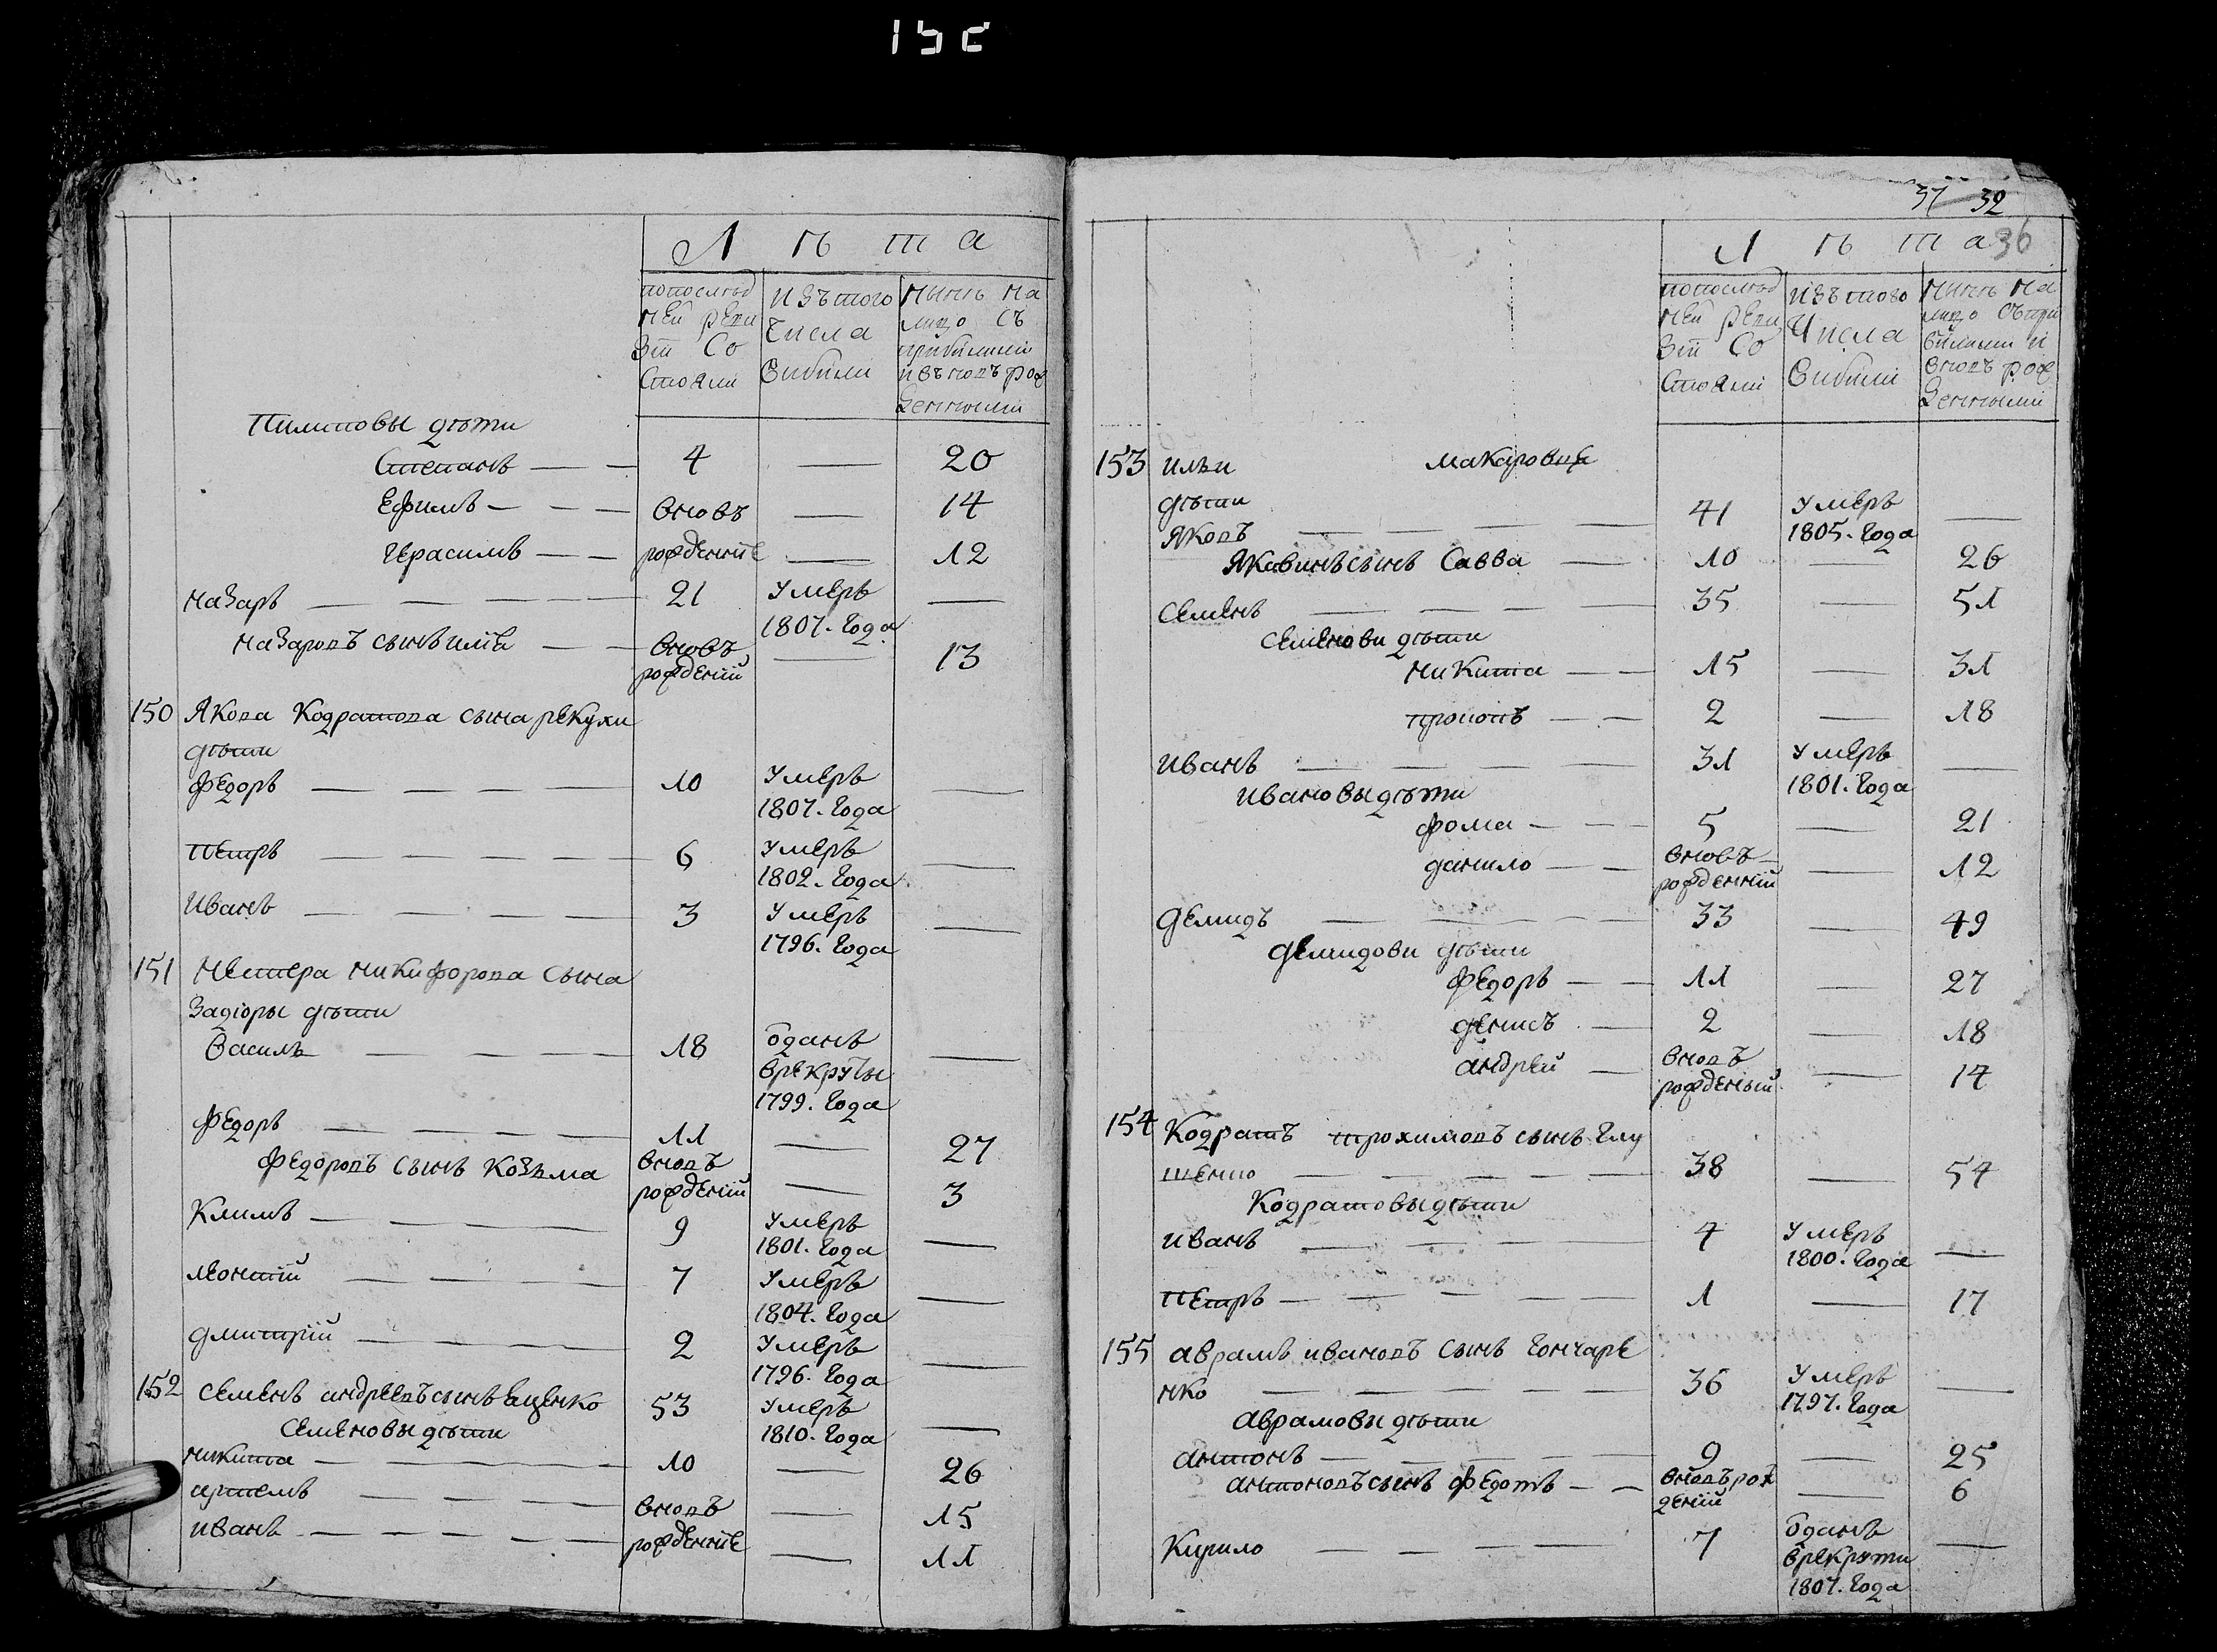 15c
Лѣта
попослѣд
ней реви
зіи Со
Стояли
изътого
Числа
Вибили
Нынѣ На
лицо Съ
прибилими
ивъновъ рож
денными
Пилиповы дѣти
Степанъ — — 4 — 20
Ефимъ — — — вновъ — 14
Герасимъ — — рожденніе — 12
Назаръ — — — — 21 Умеръ —
1807. Года
Назаровъ сынъ илія — — вновъ — 13
рожденій
150 Якова Кодратова сына рекухи
дѣти
Федоръ — — — — 10 Умеръ —
1807. Года
Петръ — — — — 6 Умеръ —
1802. Года
Иванъ — — — — 3 Умеръ —
1796. Года
151 Нестера Никифорова Сына
Задіоры дѣти
Василь — — — — 18 ѿданъ —
врекруты
1799. Года
Федоръ — — — — 11 — 27
Федоровъ Сынъ Козьма вновъ — 3
рожденій
Климъ — — — — 9 Умеръ —
1801. Года
Леонтій — — — — 7 Умеръ —
1804. Года
Дмитрій — — — — 2 Умеръ —
1796. Года
152 Семенъ андреевъ сынъ Еценко 53 Умеръ —
Семеновы дѣти 1810. Года
Никита — — — — 10 — 26
артемъ — — — — вновъ — 15
иванъ — — — — рожденніе — 11
37 32
Лѣта 36
попослѣд
ней реви
зіи Со
Стояли
изътого
Числа
Вибили
Нынѣ На
лицо Съпри
билими и
вновъ рож
денными
153 ильи Макаровича
дѣти 41 Умеръ —
Яковъ — — — — 1805. Года
Яковинъ сынъ Савва — 10 — 26
Семенъ — — — — 35 — 51
Семенови дѣти
Никита — — 15 — 31
Прокопъ — — 2 — 18
Иванъ — — — — 31 Умеръ —
Ивановы дѣти 1801. Года
Фома — — 5 — 21
Данило — — вновъ — 12
рожденній
Демидъ — — — — 33 — 49
Демидови дѣти
Федоръ — — 11 — 27
Денисъ — 2 — 18
андрей — вновъ — 14
рожденый
154 Кодратъ трохимовъ сынъ Глу
шенко — — — — 38 — 54
Кодратовы дѣти
иванъ — — — — 4 Умеръ —
1800. Года
Петръ — — — — 1 — 17
155 аврамъ ивановъ Сынъ Гончаре
нко — — — — 36 Умеръ —
1797. Года
аврамовы дѣти
антонъ — — — — 9 — 25
антоновъ сынъ Федотъ — — вновъ рож — 6
деній
Кирило — — — — 7 ѿданъ —
врекрути
1807. Года